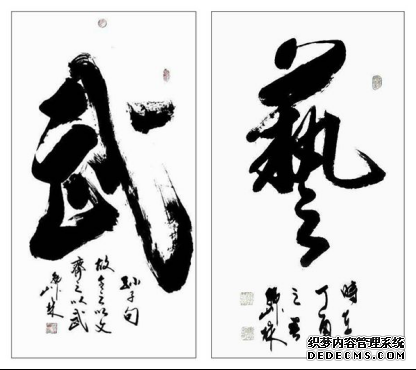 武
孙子句
故令之以文
齐之以武
藝
時在
丁酉
之春
织梦内容管理系统
DEDECMS.COM